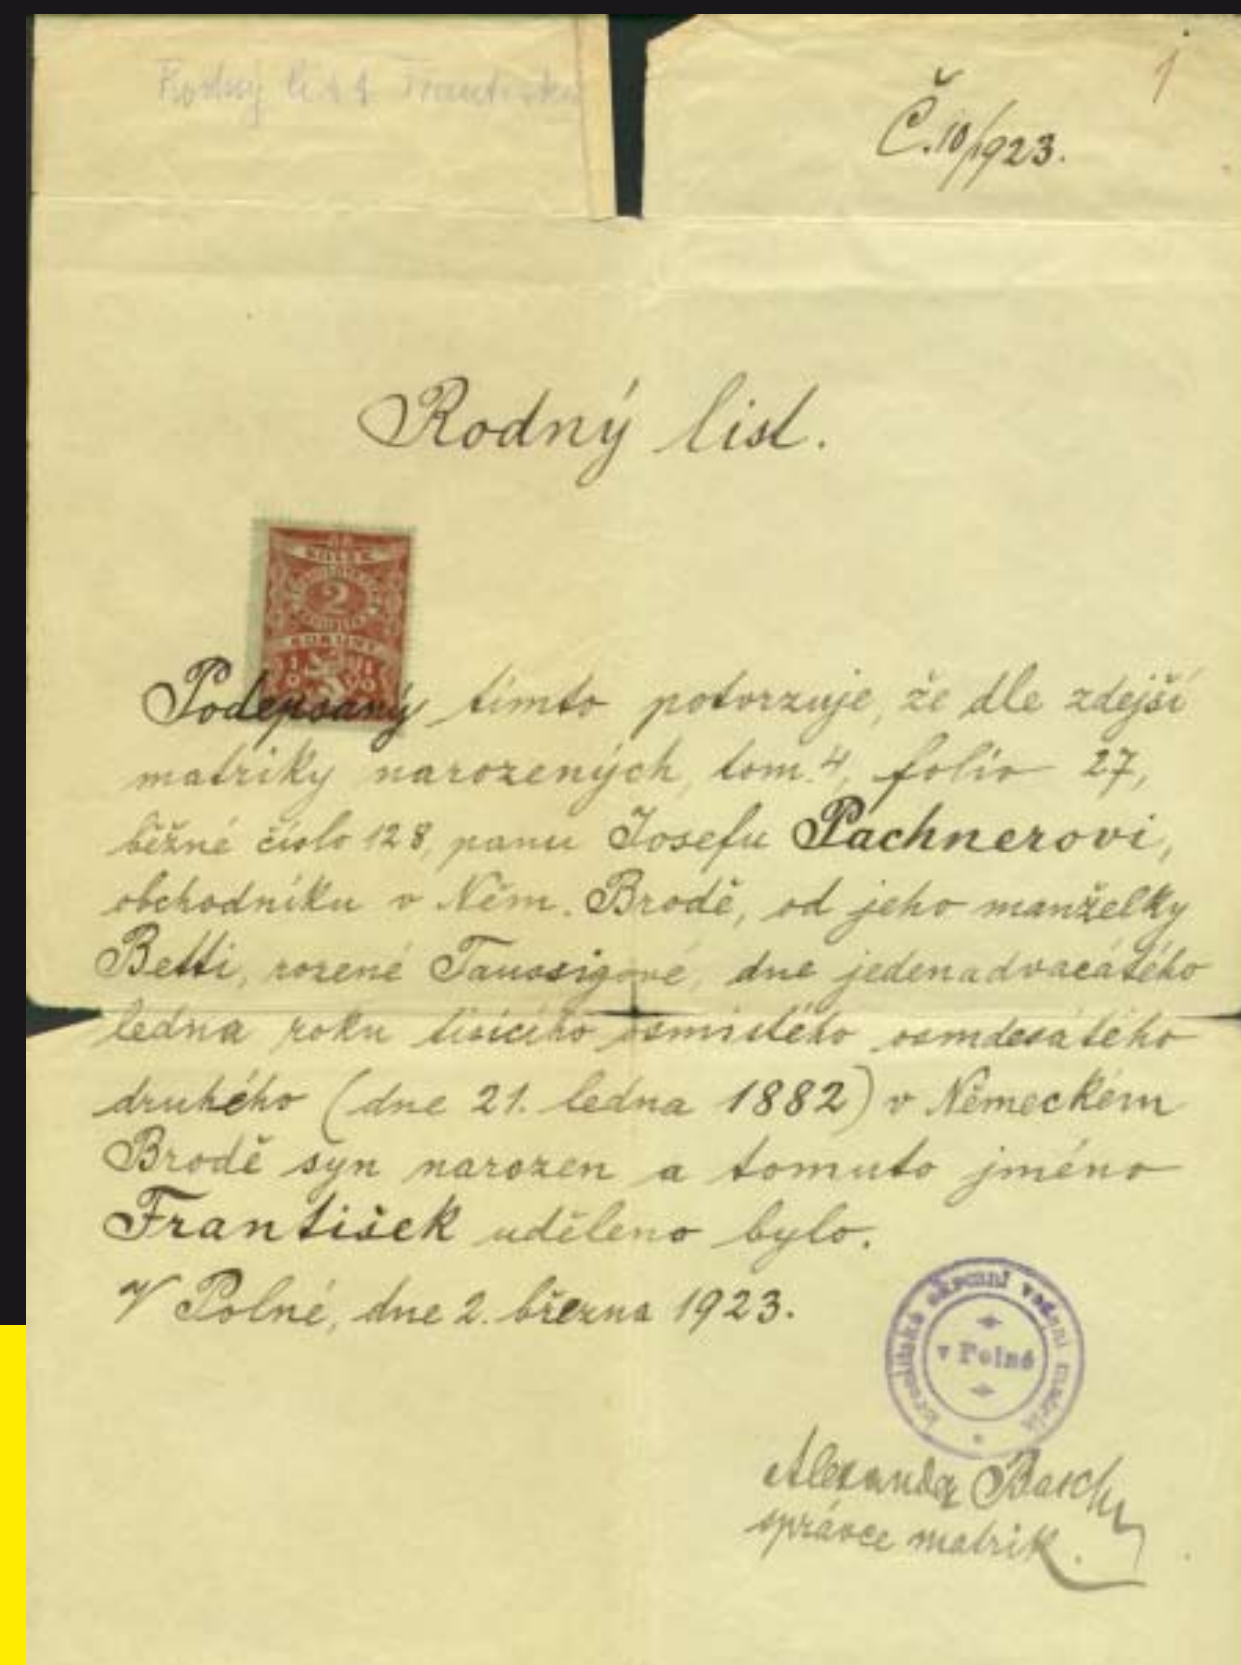 Rodný list Františka
1
Č. 10/1923.
Rodný list.
KOLEK
2
KORUNY
1919
Podepsaný tímto potvrzuje, že dle zdejší
matriky narozených, tom. 4, folio 27,
běžné číslo 128, panu Josefu Pachnerovi,
obchodníku v Něm. Brodě, od jeho manželky
Betti, rozené Taussigové, dne jedenadvacátého
ledna roku tisícího osmistého osmdesátého
druhého (dne 21. ledna 1882) v Německém
Brodě syn narozen a tomuto jméno
František uděleno bylo.
V Polné, dne 2. března 1923.
Israelitské okresní vedení matrik
v Polné
Alexander Basch
správce matrik.